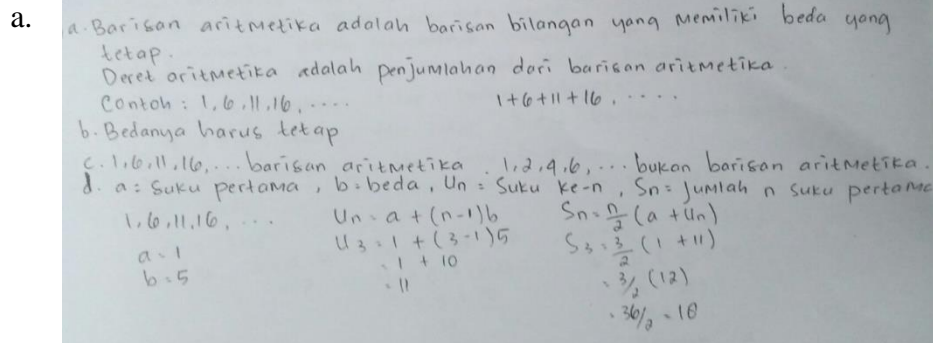 a.
a. Barisan aritmetika adalah barisan bilangan yang memiliki beda yang
tetap.
Deret aritmetika adalah penjumlahan dari barisan aritmetika.
Contoh : 1, 6, 11, 16, .... 1+6+11+16, ....
b. Bedanya harus tetap
c. 1, 6, 11, 16, ... barisan aritmetika. 1, 2, 4, 6, ... bukan barisan aritmetika.
d. a = Suku pertama, b = beda, Un = Suku ke-n, Sn = Jumlah n suku pertama
1, 6, 11, 16, ... Un = a + (n-1)b Sn = n/2 (a + Un)
a = 1 U3 = 1 + (3-1)5 S3 = 3/2 (1 + 11)
b = 5 = 1 + 10 = 3/2 (12)
= 11 = 36/2 = 18